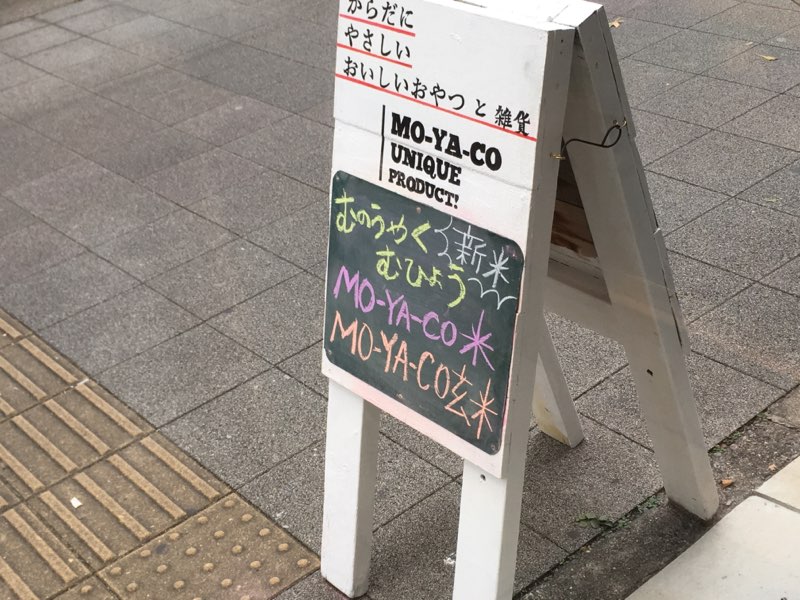 からだに
やさしい
おいしいおやつと雑貨
MO-YA-CO
UNIQUE
PRODUCT!
むのうやく
新米
むひょう
MO-YA-CO米
MO-YA-CO玄米